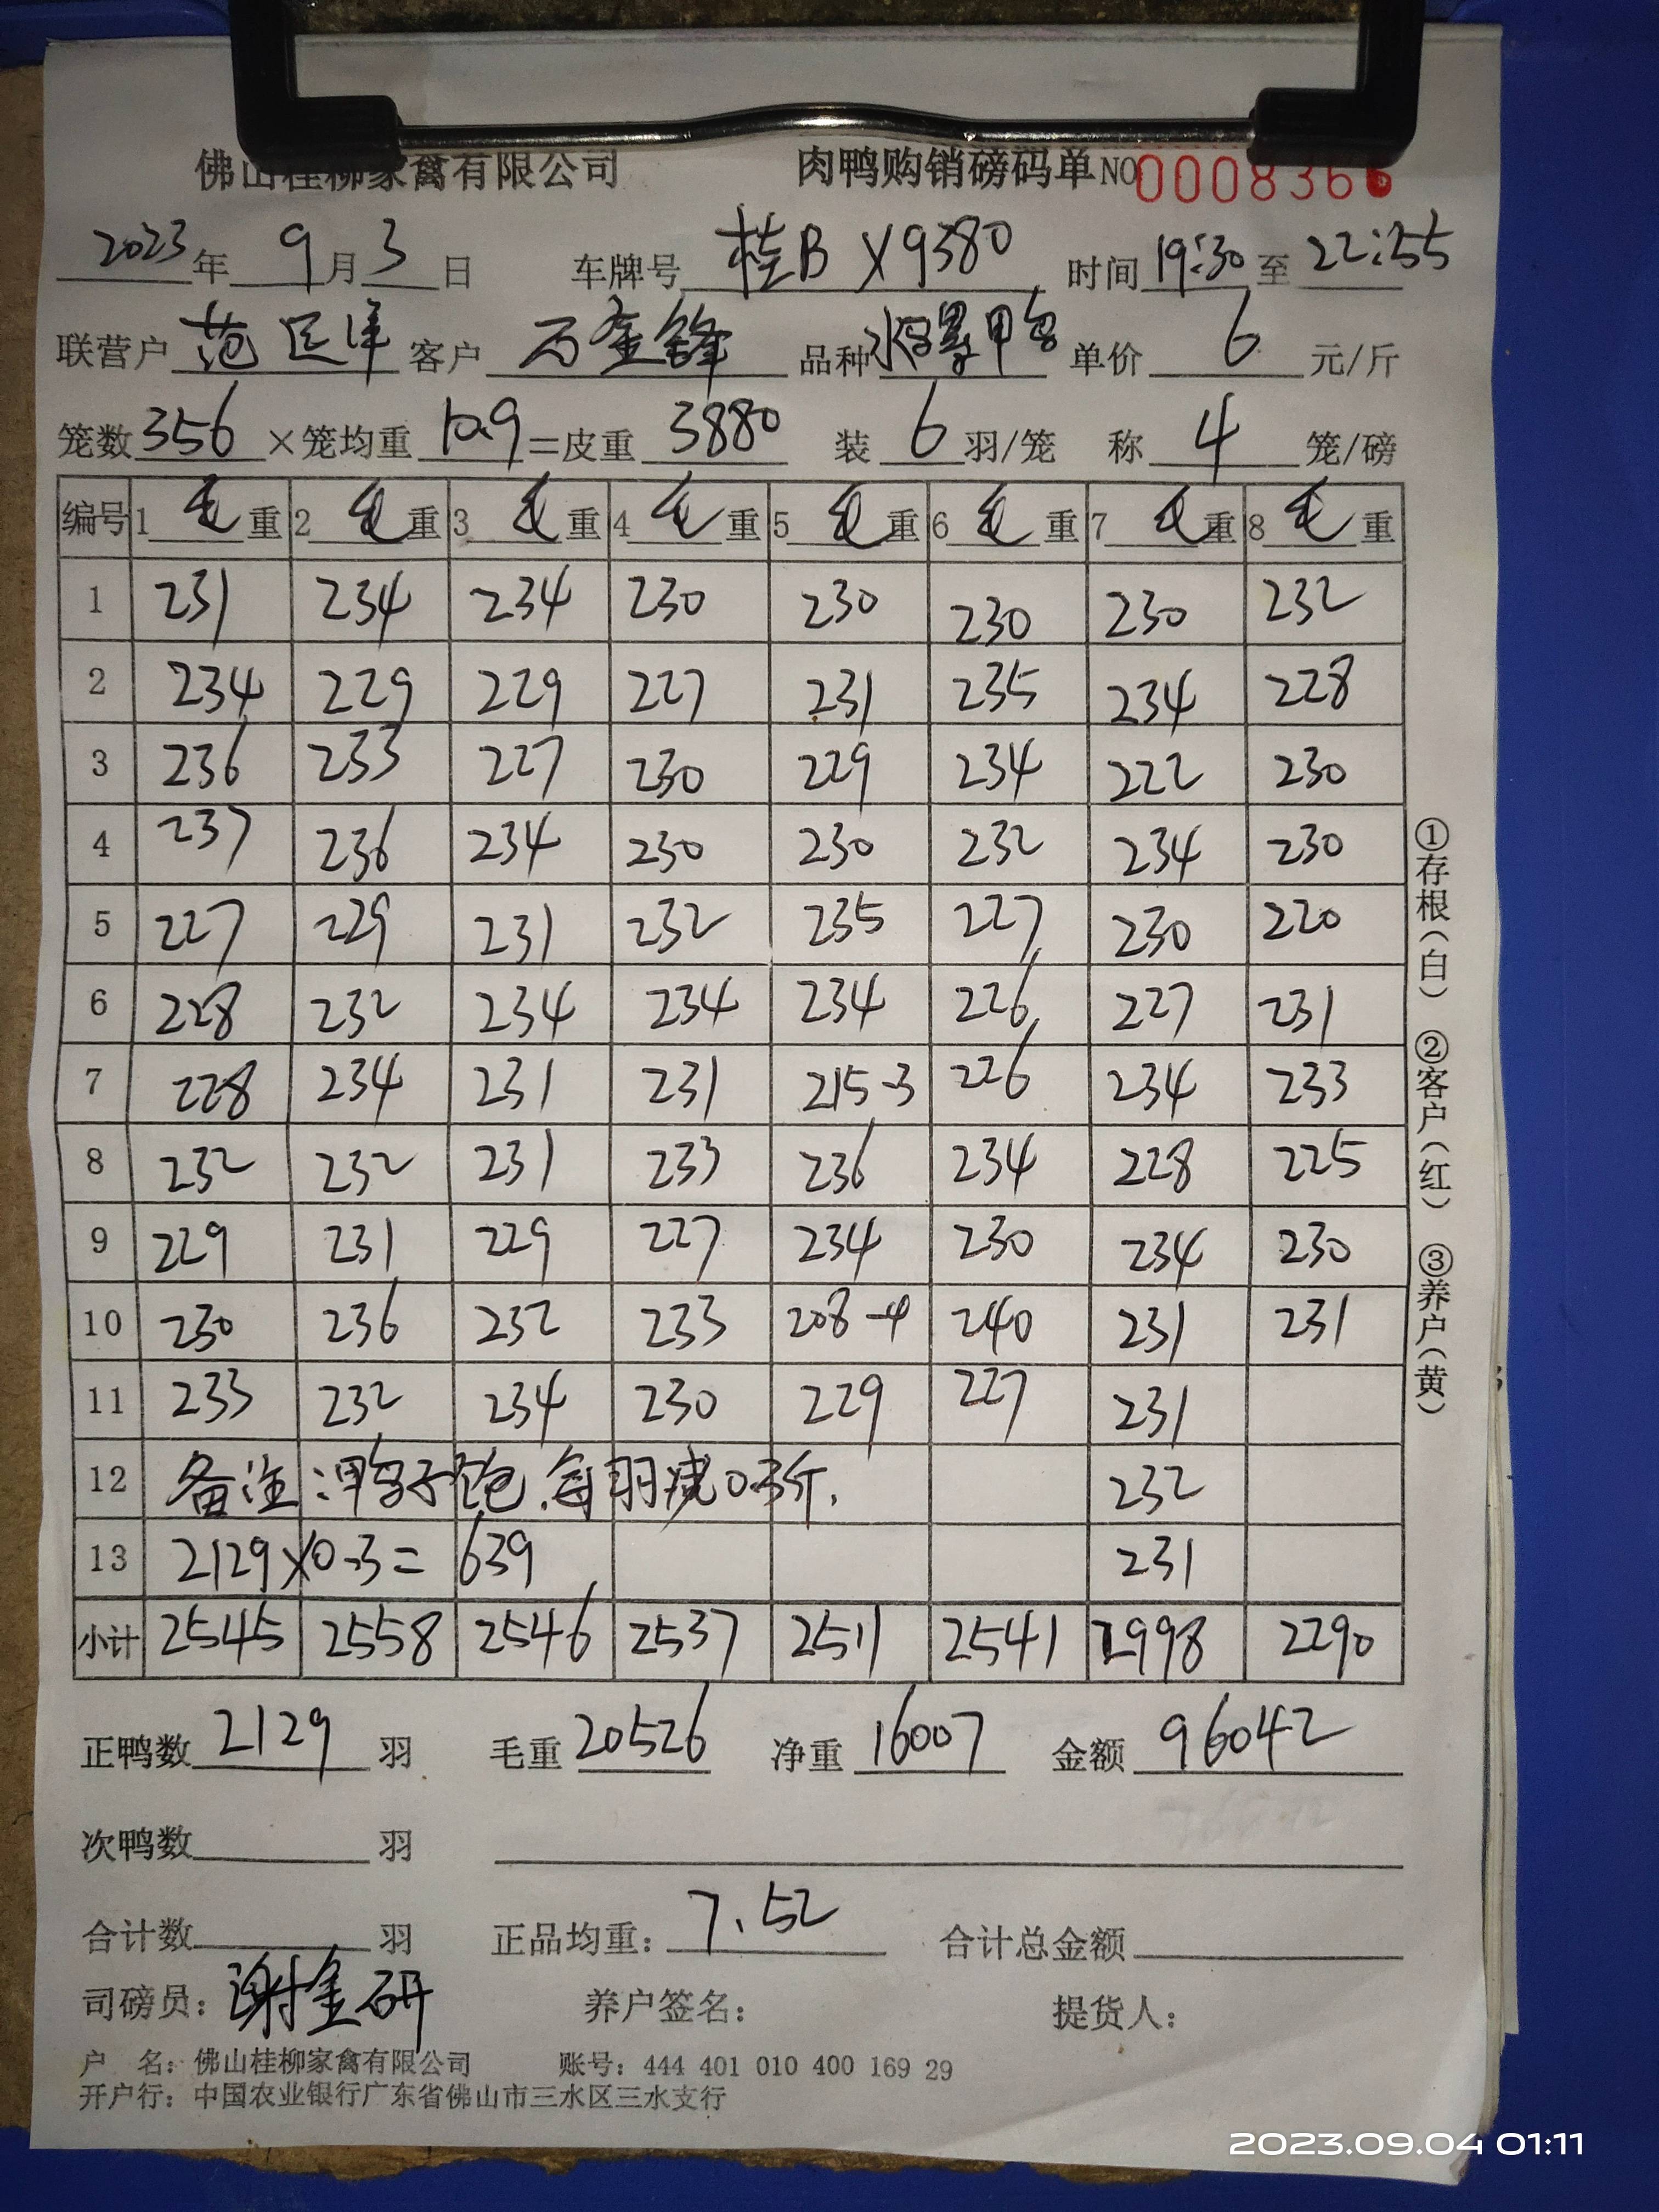 佛山桂柳家禽有限公司 肉鸭购销磅码单 NO 0008366
2023年 9月 3日 车牌号 桂B X9380 时间 19:30 至 22:55
联营户 范 客户 万金锋 品种 单价 6 元/斤
笼数 356 ×笼均重 10.9 =皮重 3880 装 6 羽/笼 称 4 笼/磅
编号 1 毛重 2 毛重 3 毛重 4 毛重 5 毛重 6 毛重 7 毛重 8 毛重
1 231 234 234 230 230 230 230 232
2 234 229 229 227 231 235 234 228
3 236 233 227 230 229 234 222 230
4 237 236 234 230 230 232 234 230
5 227 229 231 232 235 227 230 220
6 228 232 234 234 234 226 227 231
7 228 234 231 231 215-3 226 234 233
8 232 232 231 233 236 234 228 225
9 229 231 229 227 234 230 234 230
10 230 236 232 233 208-4 240 231 231
11 233 232 234 230 229 227 231
12 备注:鸭子饱,每羽减0.3斤. 232
13 2129×0.3=639 231
小计 2545 2558 2546 2537 2511 2541 2998 2290
正鸭数 2129 羽 毛重 20526 净重 16007 金额 96042
次鸭数 羽
合计数 羽 正品均重: 7.52 合计总金额
司磅员: 谢金研 养户签名: 提货人:
户 名: 佛山桂柳家禽有限公司 账号: 444 401 010 400 169 29
开户行: 中国农业银行广东省佛山市三水区三水支行
①存根(白) ②客户(红) ③养户(黄)
2023.09.04 01:11